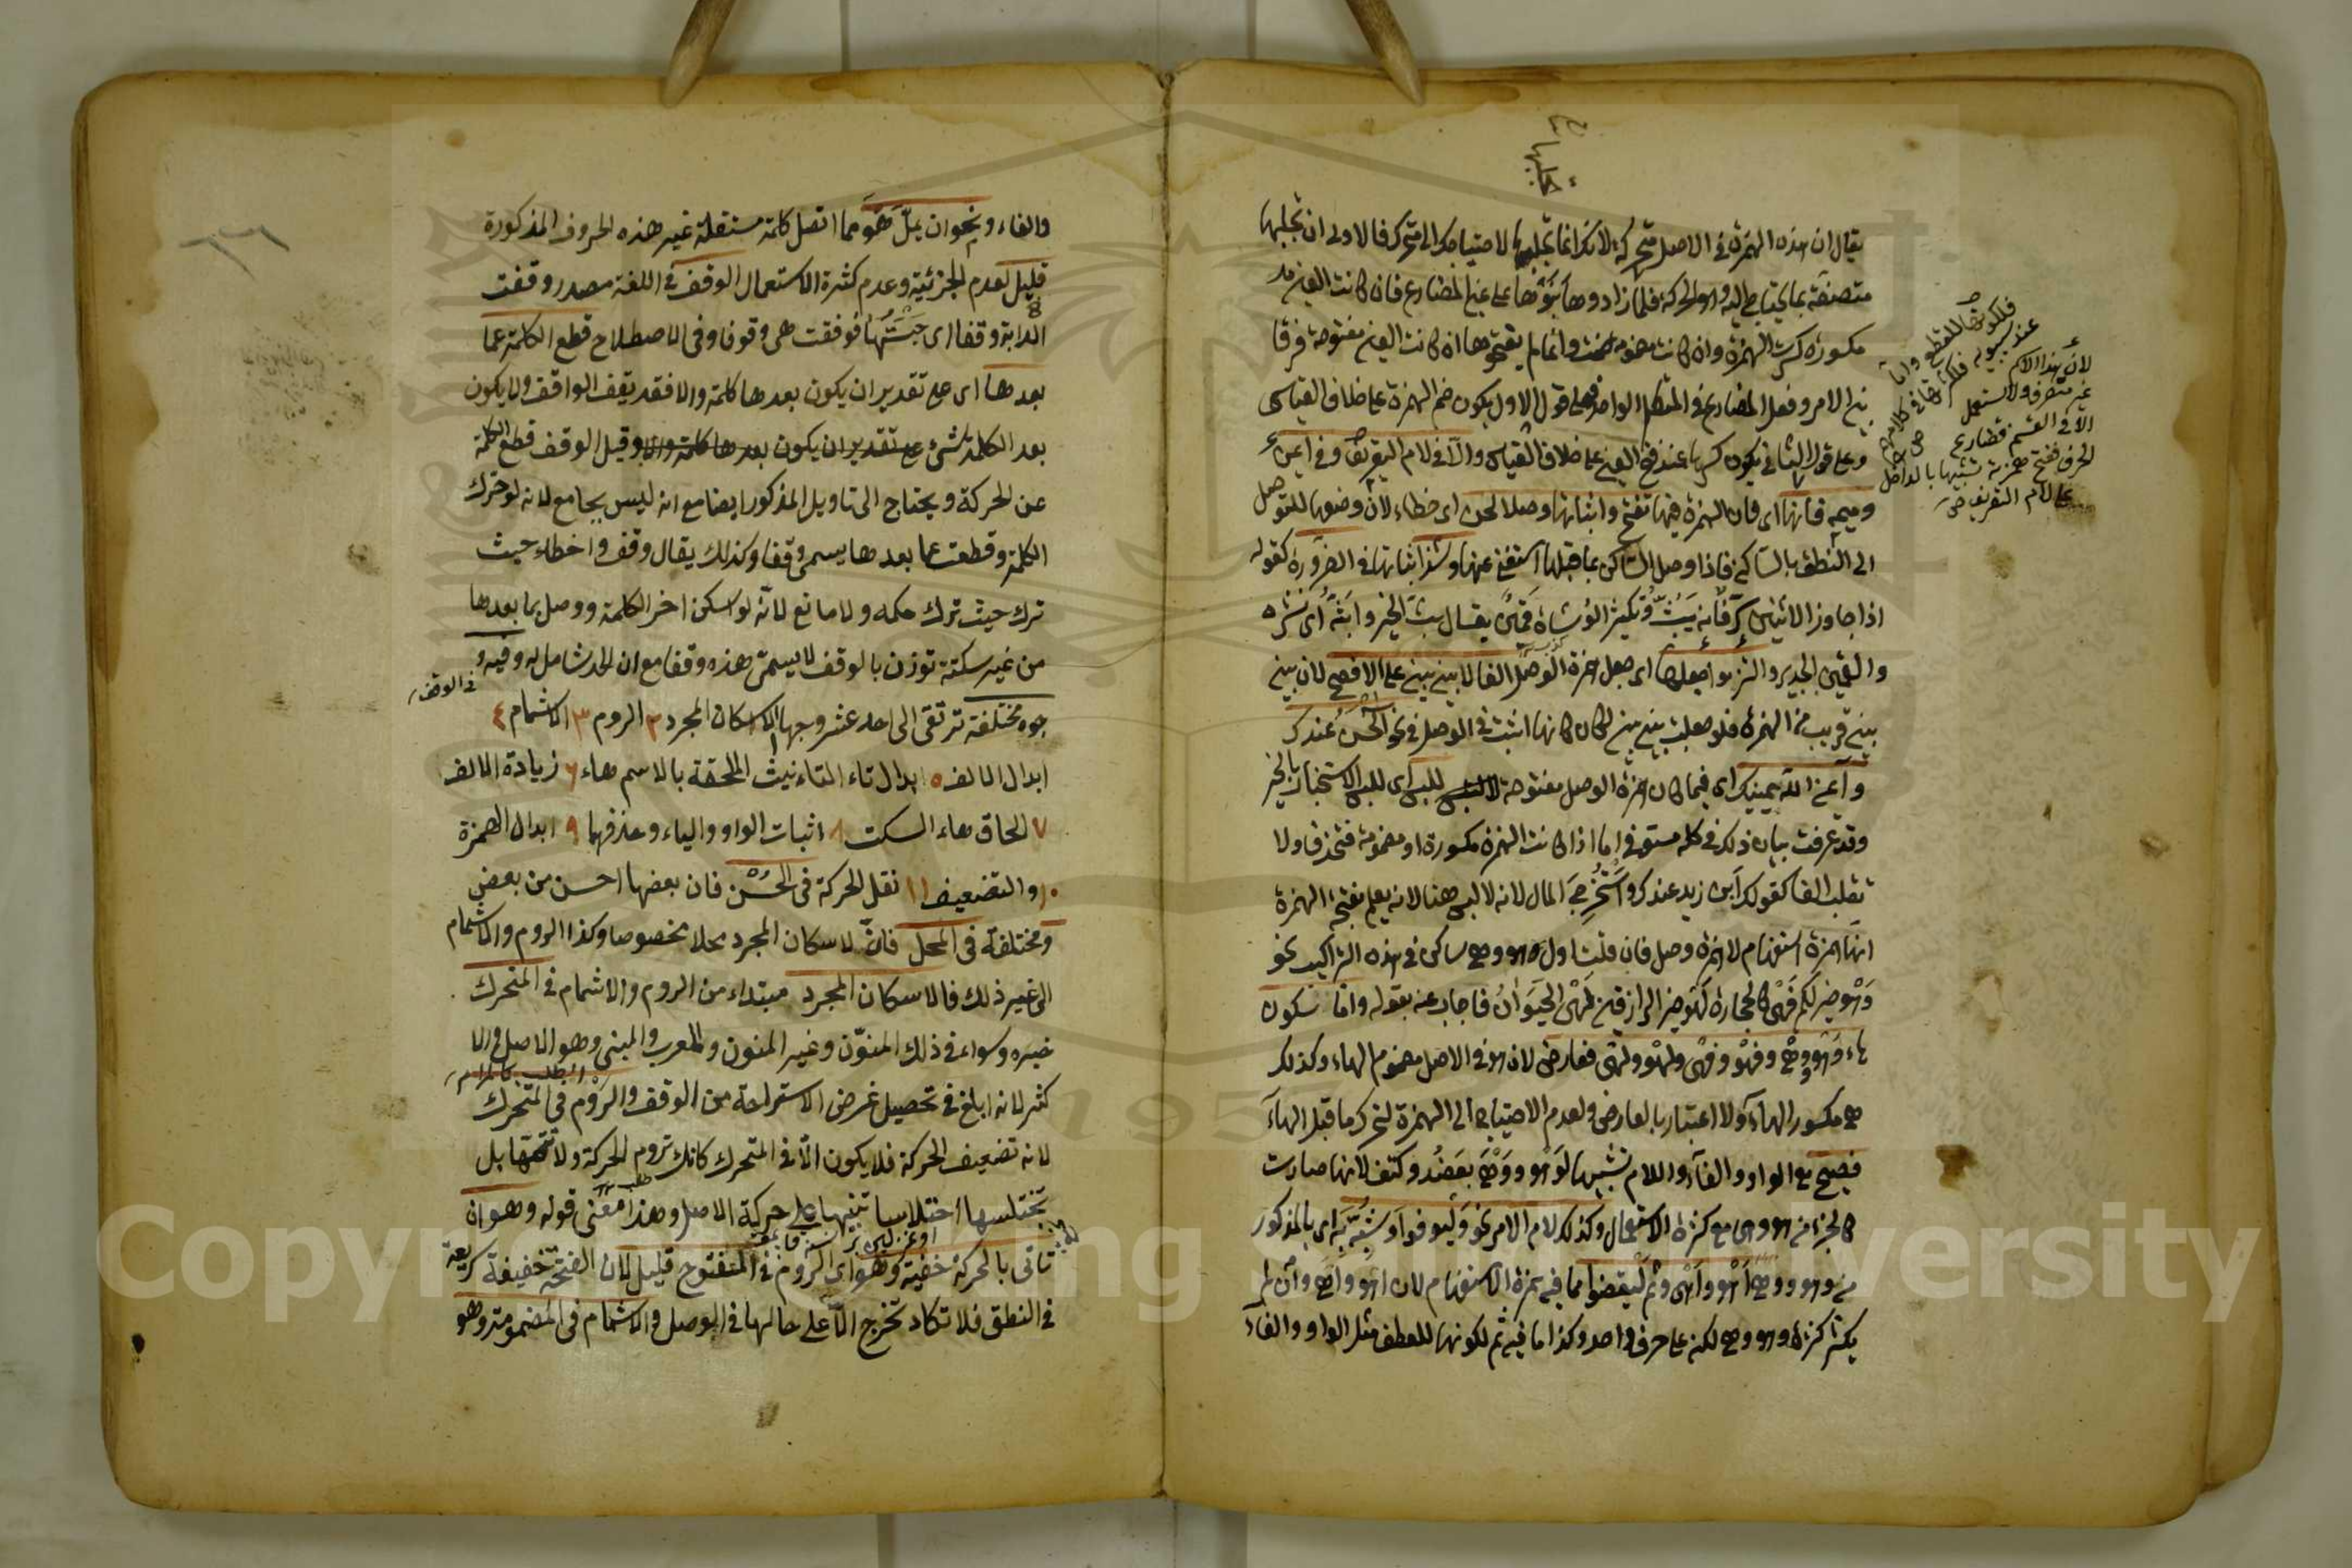 يقال ان هذه الهمزة في الاصل متحركة لانك انما تجلبها لاحتياجك الى متحرك فالاولى ان تجلبها
متصفة بما يحتاج اليه وهو الحركة فلما زادوها بنوها على عين المضارع فان كانت العين
مكسورة كسرت الهمزة وان كانت مضمومة ضمت وانما لم يفتحوها ان كانت العين مفتوحة فرقا
بين الامر وفعل المضارع في المتكلم الواحد فعلى قول الاول يكون ضم الهمزة على خلاف القياس
وعلى قول الثاني يكون كسرها عند فتح العين على خلاف القياس والا في لام التعريف وفي ايمن
وميمه فانها اى فان الهمزة فيها تفتح واثباتها وصلا لحن اى خطاء لان وضعها للتوصل
الى النطق بالساكن فاذا وصل الساكن بما قبلها استغنى عنها وشذ اثباتها في الضرورة كقوله
اذا جاوز الاثنين سر فانه يبث وتكثير الوشاة قمين يقال بث الخبر وابثه اى نشره
والقمين الجدير والتزموا جعلها اى جعل همزة الوصل الفا لا بين بين على الافصح لان بين
بين قريب من الهمزة فلو جعلت بين بين لكان كانها اثبتت في الوصل في نحو الحسن عندك
وآيمن الله يمينك اى فيما كان همزة الوصل مفتوحة للبس اى للبس الاستخبار بالخبر
وقد عرفت بيان ذلك في كله مستوفى اما اذا كانت الهمزة مكسورة او مضمومة فتحذف ولا
تقلب الفا كقولك ابن زيد عندك واستخرج المال لانه لا لبس هنا لانه يعلم بفتح الهمزة
انها همزة استفهام لا همزة وصل فان قلت اول هو وهى ساكن في هذه التراكيب نحو
وهو خير لكم فهى كالحجارة لهو خير الرازقين لهى الحيوان فاجاب عنه بقوله واما سكون
هاء وهو وهى وفهو وفهى ولهو ولهى فعارض لان هو في الاصل مضموم الهاء وكذلك
هى مكسور الهاء ولا اعتبار بالعارض ولعدم الاحتياج الى الهمزة لتحرك ما قبل الهاء
فصيح مع الواو والفاء واللام تشبيها لوهو ووهى بعضد وكتف لانها صارت
كالجزء من هو وهى مع كثرة الاستعمال وكذلك لام الامر نحو وليوفوا وشبه به اى بالمذكور
من وهو ووهى اهو واهى وثم ليقضوا مما فيه همزة الاستفهام لان اهو واهى وان لم
يكثر كثرة وهو وهى لكنه على حرف واحد وكذا ما فيه ثم لكونها للعطف مثل الواو والفاء
لان هذا الاسم
غير متصرف ولا يستعمل
الا في القسم فضارع
الحرف ففتح همزته تشبيها بالداخل
على لام التعريف
والفاء ونحو ان يمل هو مما اتصل كلمة مستقلة غير هذه الحروف المذكورة
قليل لعدم الجزئية وعدم كثرة الاستعمال الوقف في اللغة مصدر وقفت
الدابة وقفا اى حبستها فوقفت هى وقوفا وفي الاصطلاح قطع الكلمة عما
بعدها اى على تقدير ان يكون بعدها كلمة والا فقد يقف الواقف ولا يكون
بعد الكلمة شئ على تقدير ان يكون بعدها كلمة والا وقيل الوقف قطع الكلمة
عن الحركة ويحتاج الى تاويل المذكور ايضا مع انه ليس بجامع لانه لو حرك
الكلمة وقطعت عما بعدها يسمى وقفا وكذلك يقال وقف واخطاء حيث
ترك حيث ترك حكمه ولا مانع لانه لو اسكن اخر الكلمة ووصل بما بعدها
من غير سكتة توذن بالوقف لا يسمى هذه وقفا مع ان الحد شامل له وفيه و
في الوقف
جوه مختلفة ترتقى الى احد عشر وجها ١ الاسكان المجرد ٢ الروم ٣ الاشمام ٤
ابدال الالف ٥ ابدال تاء التاءنيث الملحقة بالاسم هاء ٦ زيادة الالف
٧ الحاق هاء السكت ٨ اثبات الواو والياء وحذفهما ٩ ابدال الهمزة
١٠ والتضعيف ١١ نقل الحركة في الحسن فان بعضها احسن من بعض
ومختلفة في المحل فان لاسكان المجرد محلا مخصوصا وكذا الروم والاشمام
الى غير ذلك فالاسكان المجرد مبتداء من الروم والاشمام في المتحرك
خبره وسواء في ذلك المنون وغير المنون والمعرب والمبنى وهو الاصل والا
كثر لانه ابلغ في تحصيل غرض الاستراحة من الوقف والروم في المتحرك
لانه تضعيف الحركة فلا يكون الا في المتحرك كانك تروم الحركة ولا تتمها بل
تختلسها اختلاسا تنبيها على حركة الاصل وهذا معنى قوله وهو ان
تاتى بالحركة خفية وهو اى الروم في المفتوح قليل لان الفتحة خفيفة سريعة
في النطق فلا تكاد تخرج الا على حالها في الوصل والاشمام في المضموم وهو
Copyright © King
versity